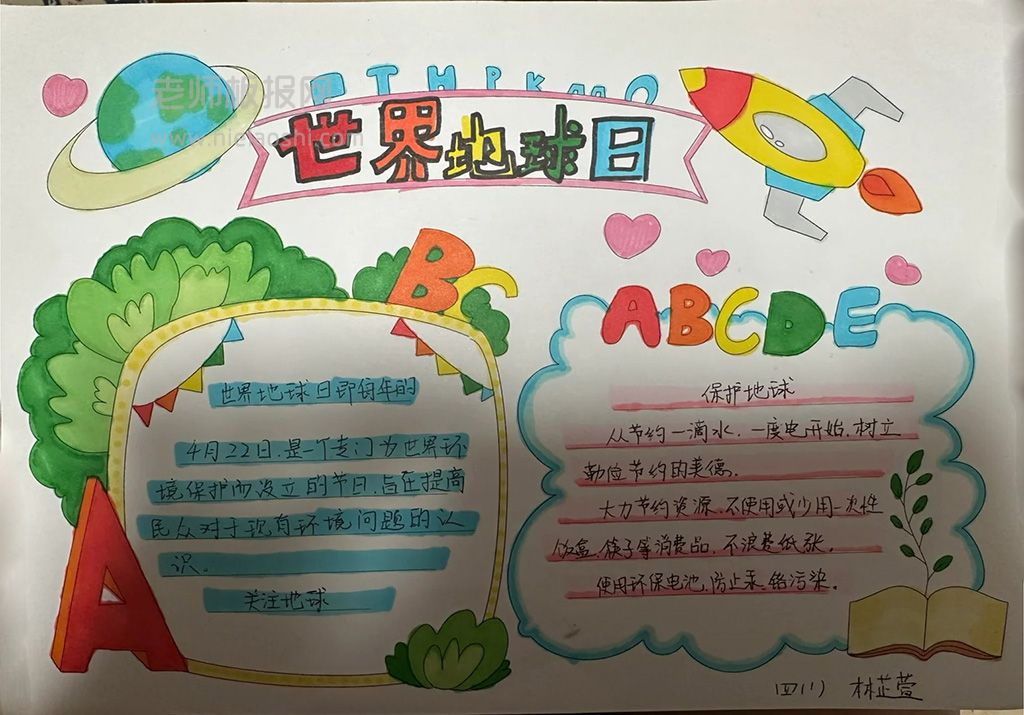 老师板报网
THPK
世界地球日
BC
世界地球日即每年的
4月22日,是一个专门为世界环
境保护而设立的节日,旨在提高
民众对于现有环境问题的认
识。
关注地球
A
ABCDE
保护地球
从节约一滴水,一度电开始,树立
勤位节约的美德。
大力节约资源,不使用或少用一次性
饭盒、筷子等消费品,不浪费纸张。
使用环保电池,防止汞、铬污染。
四(1) 林芷萱